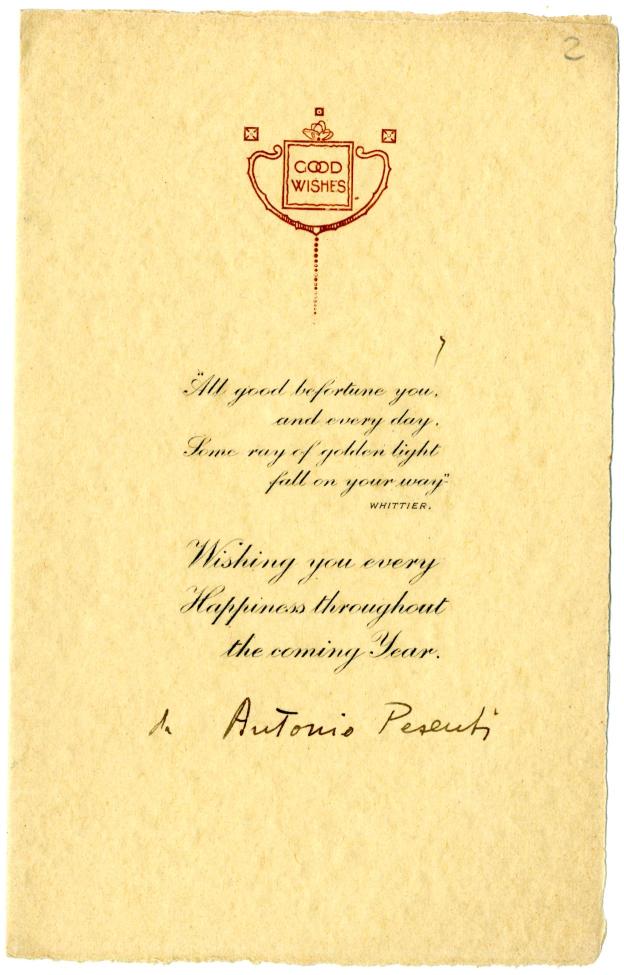 2
GOOD
WISHES
"All good befortune you,
and every day,
Some ray of golden light
fall on your way"
WHITTIER.
Wishing you every
Happiness throughout
the coming Year.
da Antonio Pesenti